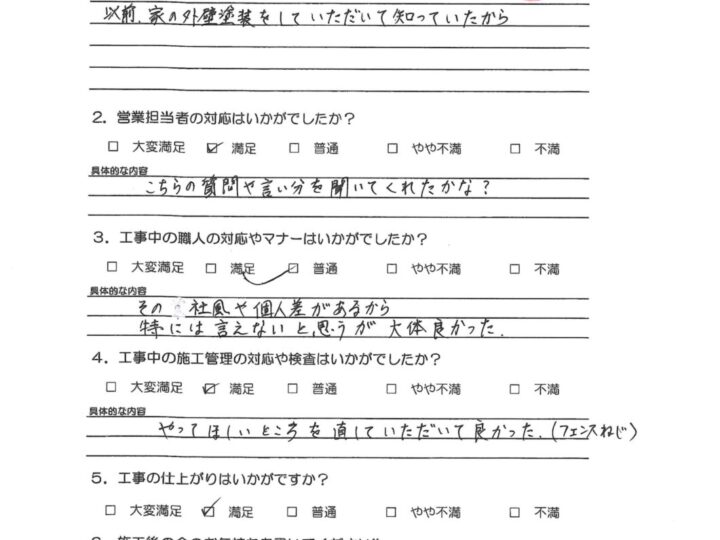 以前、家の外壁塗装をしていただいて知っていたから
2. 営業担当者の対応はいかがでしたか？
□ 大変満足 ☑ 満足 □ 普通 □ やや不満 □ 不満
具体的な内容
こちらの質問や言い分を聞いてくれたかな？
3. 工事中の職人の対応やマナーはいかがでしたか？
□ 大変満足 □ 満足 □ 普通 □ やや不満 □ 不満
具体的な内容
その 社風や個人差があるから
特には言えないと思うが大体良かった.
4. 工事中の施工管理の対応や検査はいかがでしたか？
□ 大変満足 ☑ 満足 □ 普通 □ やや不満 □ 不満
具体的な内容
やってほしいところを直していただいて良かった.(フェンスねじ)
5. 工事の仕上がりはいかがですか？
□ 大変満足 ☑ 満足 □ 普通 □ やや不満 □ 不満